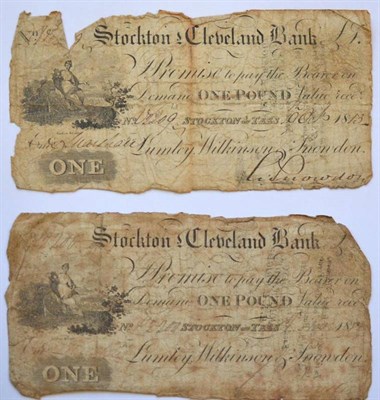 Stockton & Cleveland Bank £1.
I Promise to pay the Bearer on
Demand ONE POUND Value rec
No 09 STOCKTON on TEES 1815
Lumley Wilkinson Snowden
ONE
Stockton & Cleveland Bank £
I Promise to pay the Bearer on
Demand ONE POUND Value rec
No STOCKTON on TEES 181
Lumley Wilkinson Snowden
ONE